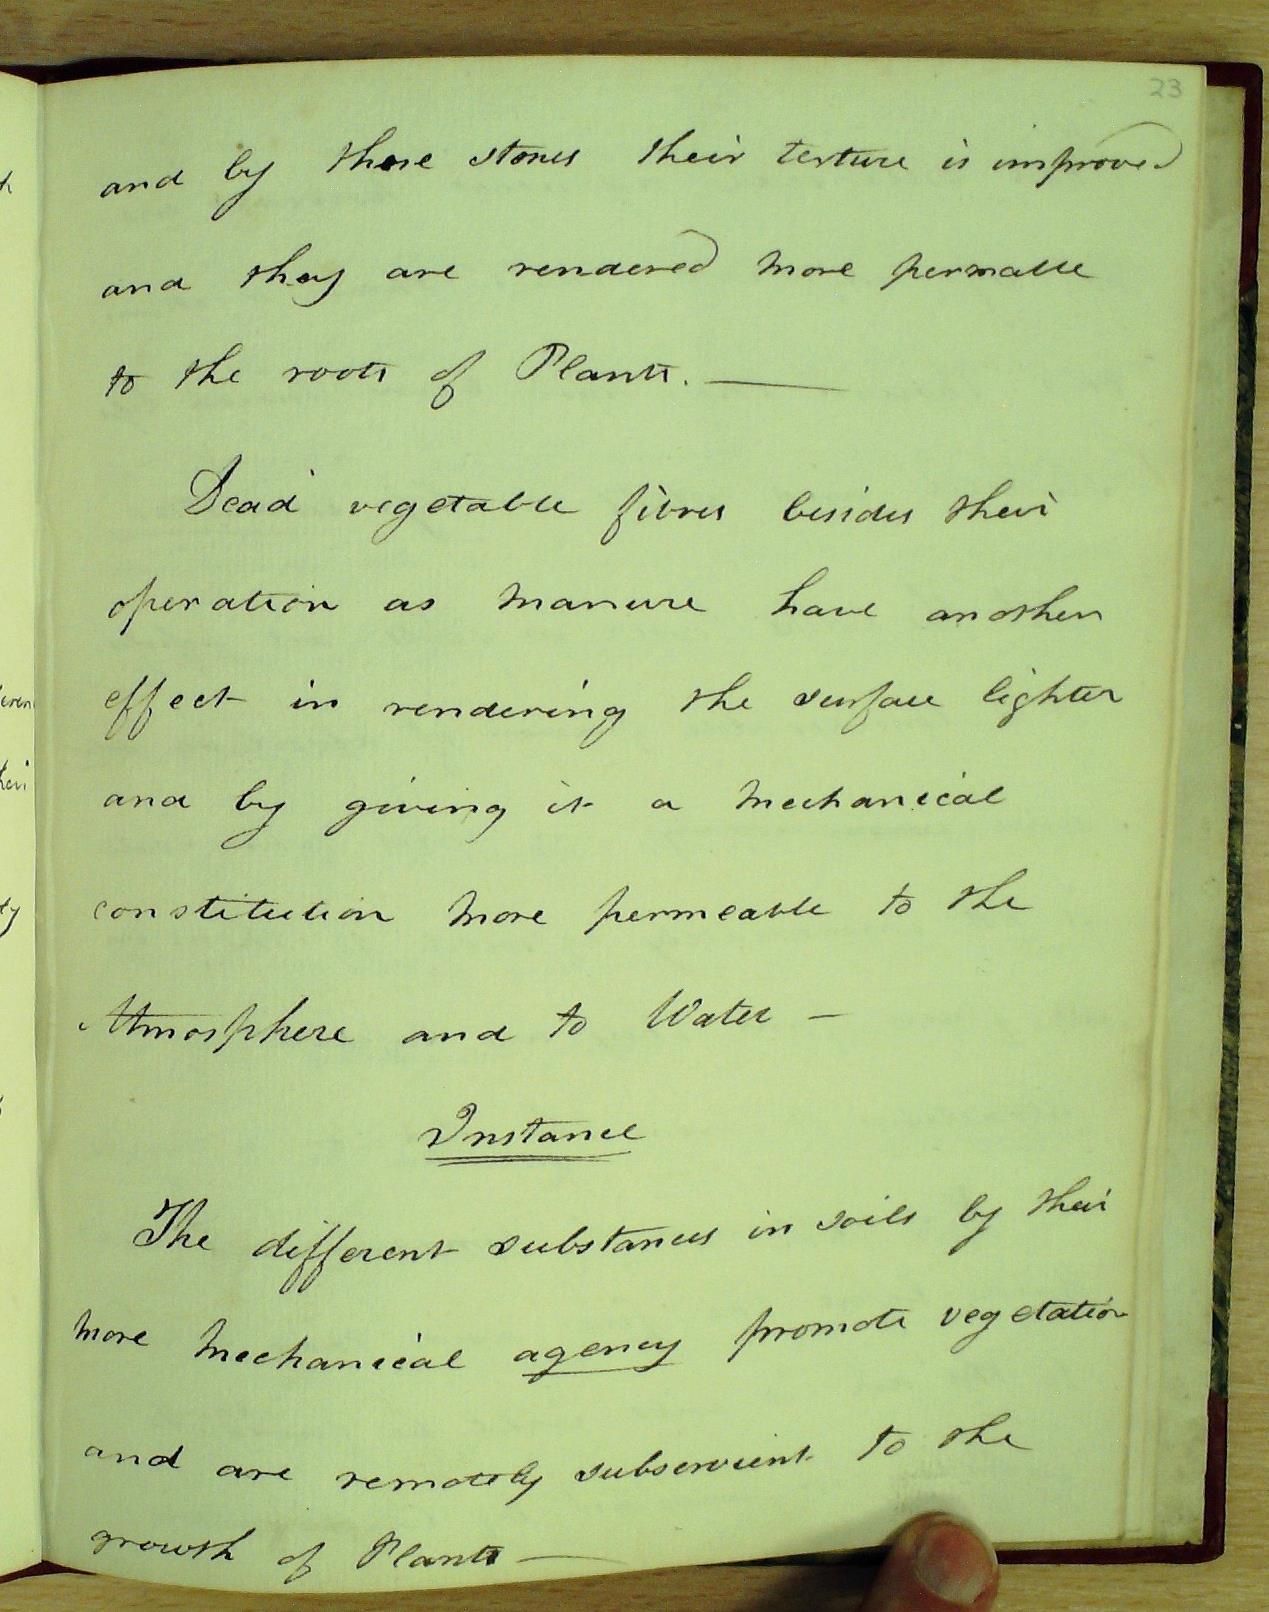 23
and by these stones their texture is improved
and they are rendered more permable
to the roots of Plants. —
Dead vegetable fibres besides their
operation as manure have another
effect in rendering the surface lighter
and by giving it a mechanical
constitution more permeable to the
Atmosphere and to Water —
Instance
The different substances in soils by their
more mechanical agency promote vegetation
and are remotely subservient to the
growth of Plants —